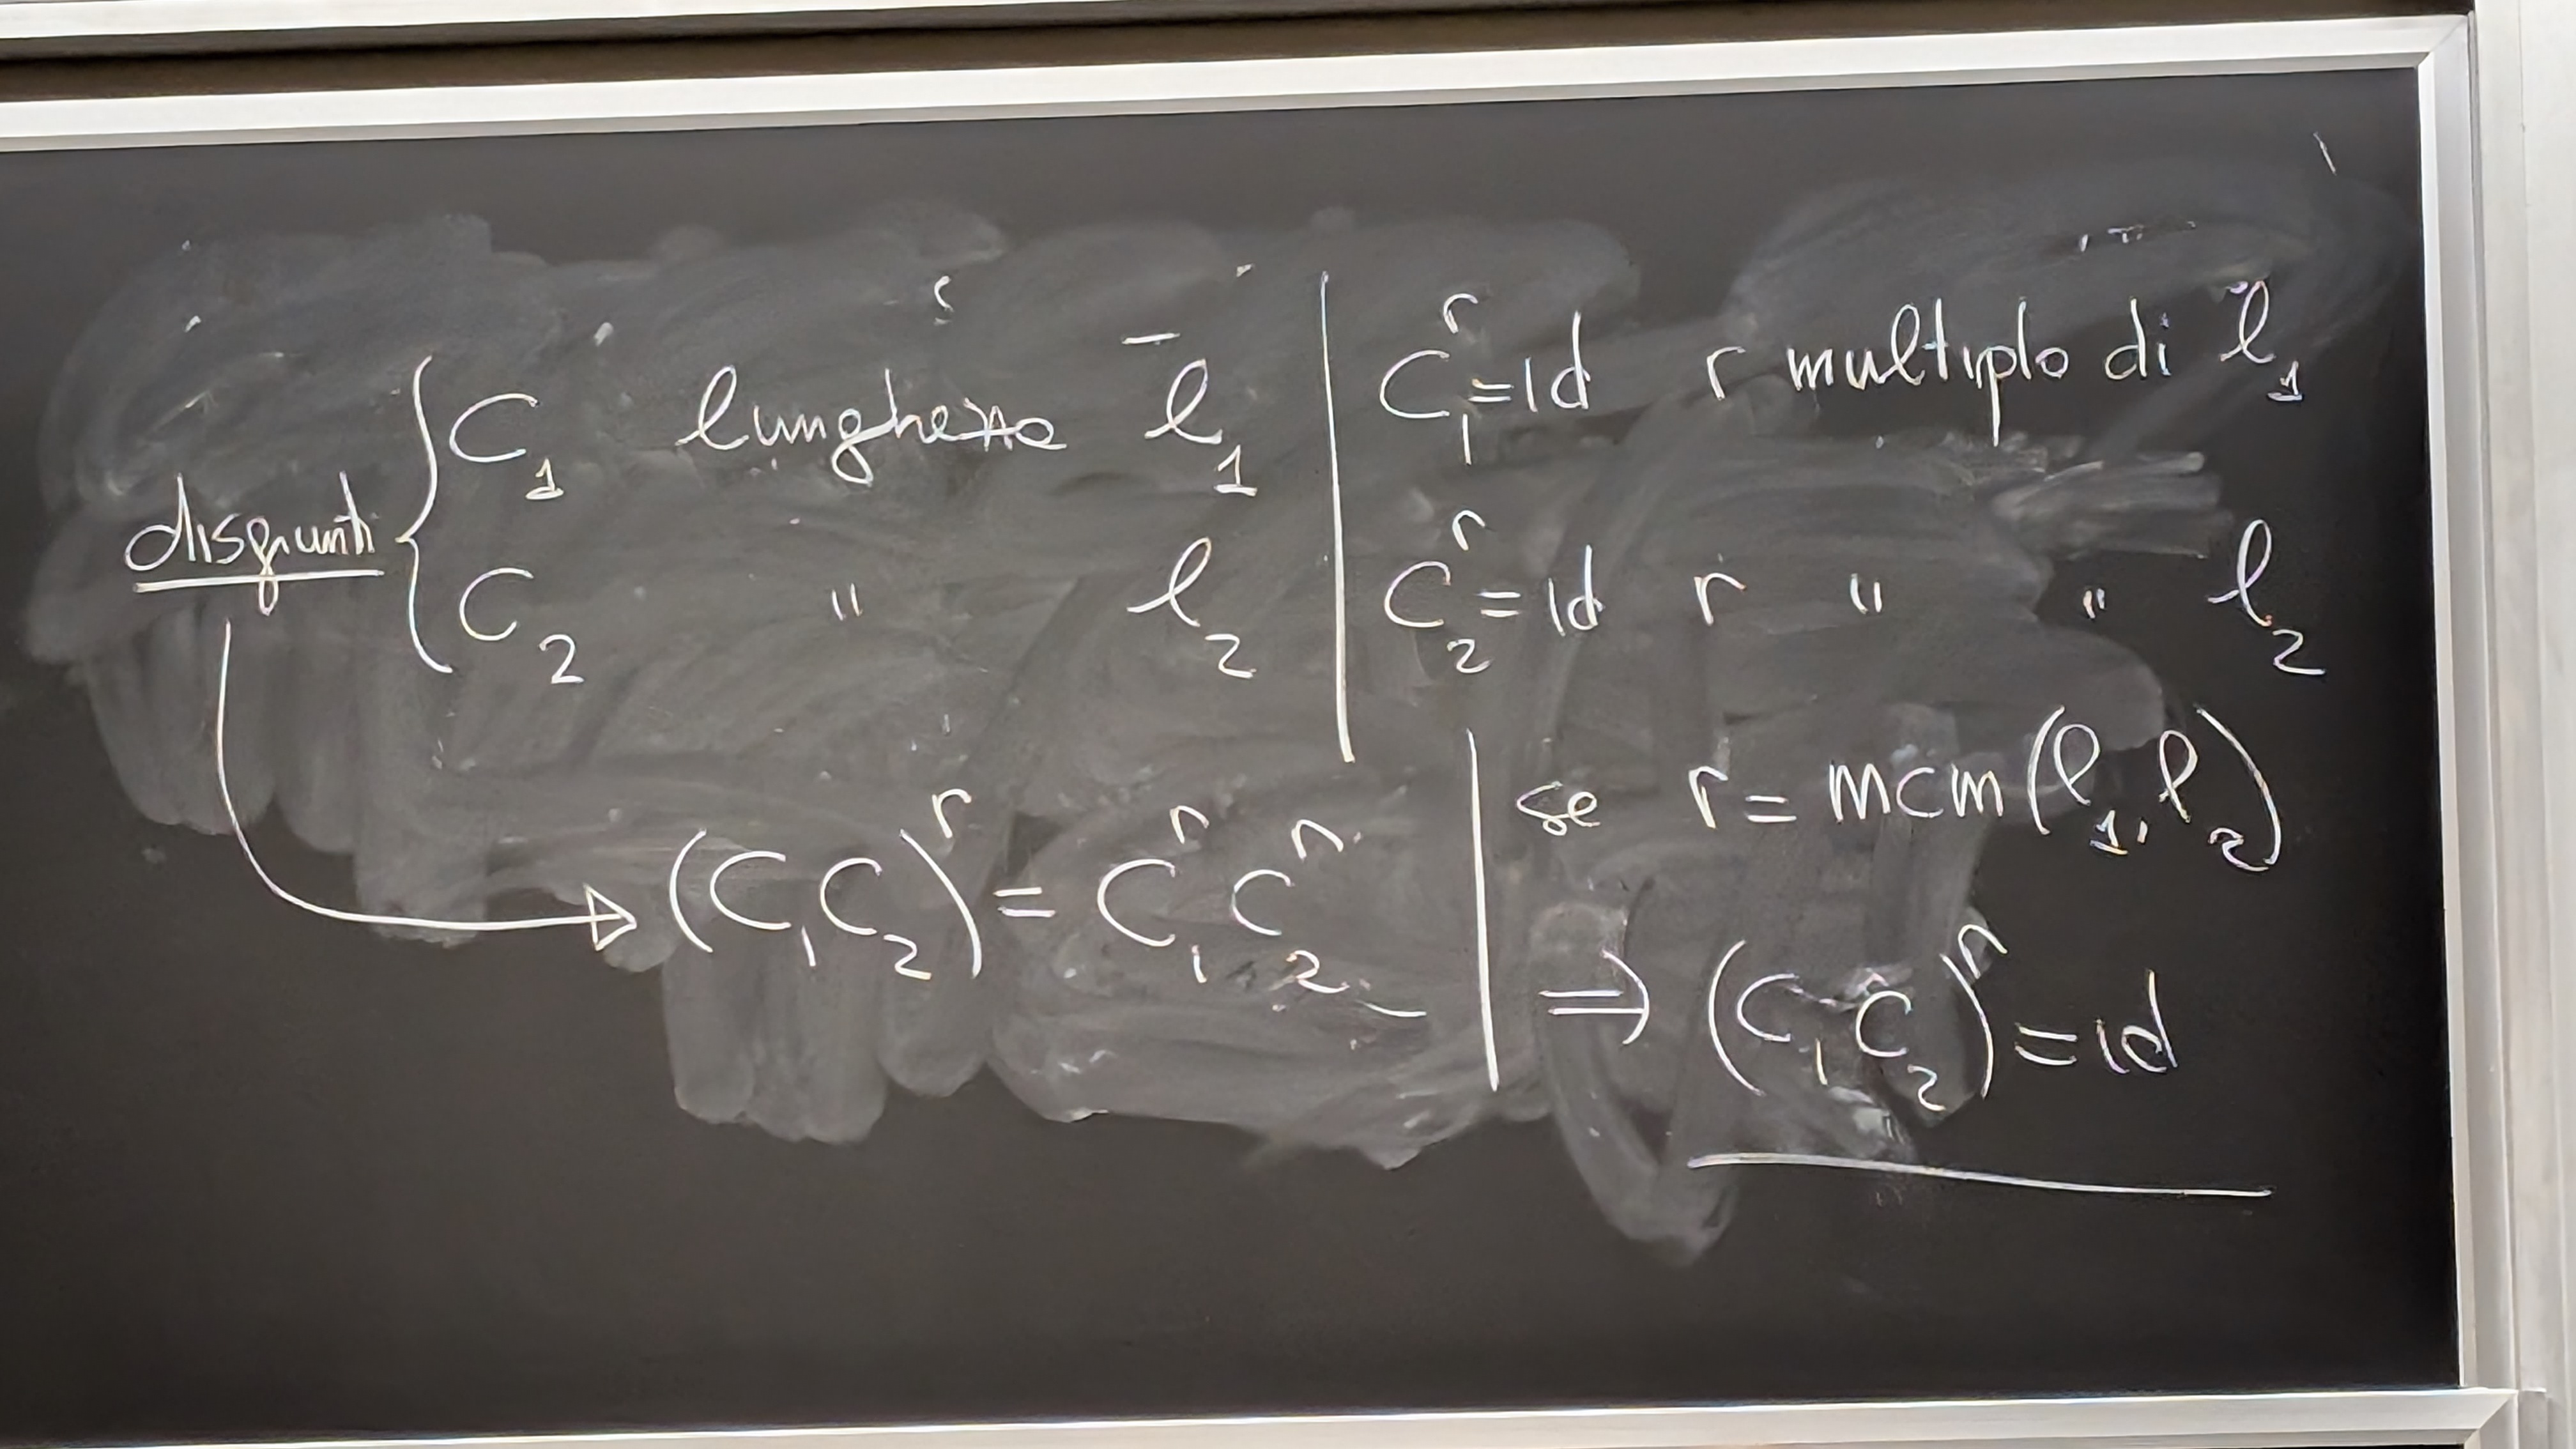 disgiunti { C₁ lunghezza l₁ | C₁ʳ = id r multiplo di l₁
C₂ " l₂ | C₂ʳ = id r " " l₂
(C₁C₂)ʳ = C₁ʳ C₂ʳ | se r = mcm(l₁, l₂)
⇒ (C₁C₂)ʳ = id